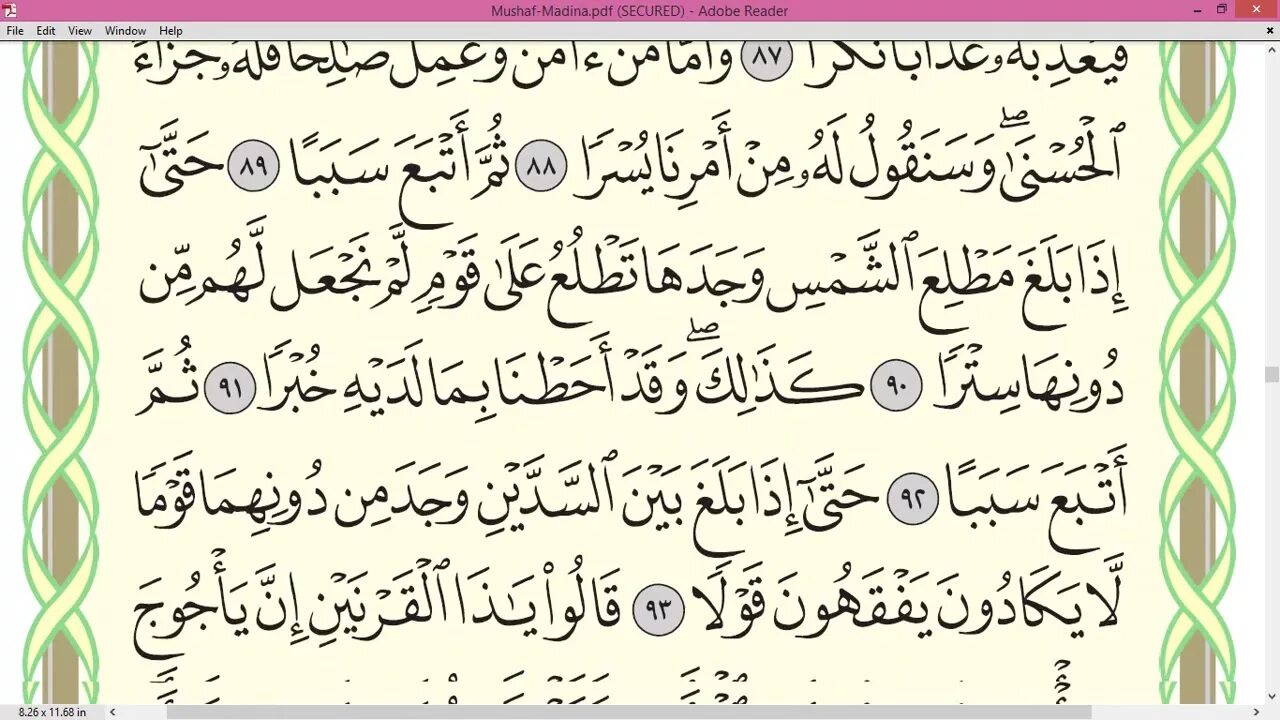 Mushaf-Madina.pdf (SECURED) - Adobe Reader
File Edit View Window Help
فَيُعَذِّبُهُۥ عَذَابًا نُّكْرًا ٨٧ وَأَمَّا مَنْ ءَامَنَ وَعَمِلَ صَٰلِحًا فَلَهُۥ جَزَآءً
ٱلْحُسْنَىٰ ۖ وَسَنَقُولُ لَهُۥ مِنْ أَمْرِنَا يُسْرًا ٨٨ ثُمَّ أَتْبَعَ سَبَبًا ٨٩ حَتَّىٰٓ
إِذَا بَلَغَ مَطْلِعَ ٱلشَّمْسِ وَجَدَهَا تَطْلُعُ عَلَىٰ قَوْمٍ لَّمْ نَجْعَل لَّهُم مِّن
دُونِهَا سِتْرًا ٩٠ كَذَٰلِكَ ۖ وَقَدْ أَحَطْنَا بِمَا لَدَيْهِ خُبْرًا ٩١ ثُمَّ
أَتْبَعَ سَبَبًا ٩٢ حَتَّىٰٓ إِذَا بَلَغَ بَيْنَ ٱلسَّدَّيْنِ وَجَدَ مِن دُونِهِمَا قَوْمًا
لَّا يَكَادُونَ يَفْقَهُونَ قَوْلًا ٩٣ قَالُوا۟ يَٰذَا ٱلْقَرْنَيْنِ إِنَّ يَأْجُوجَ
8.26 x 11.68 in